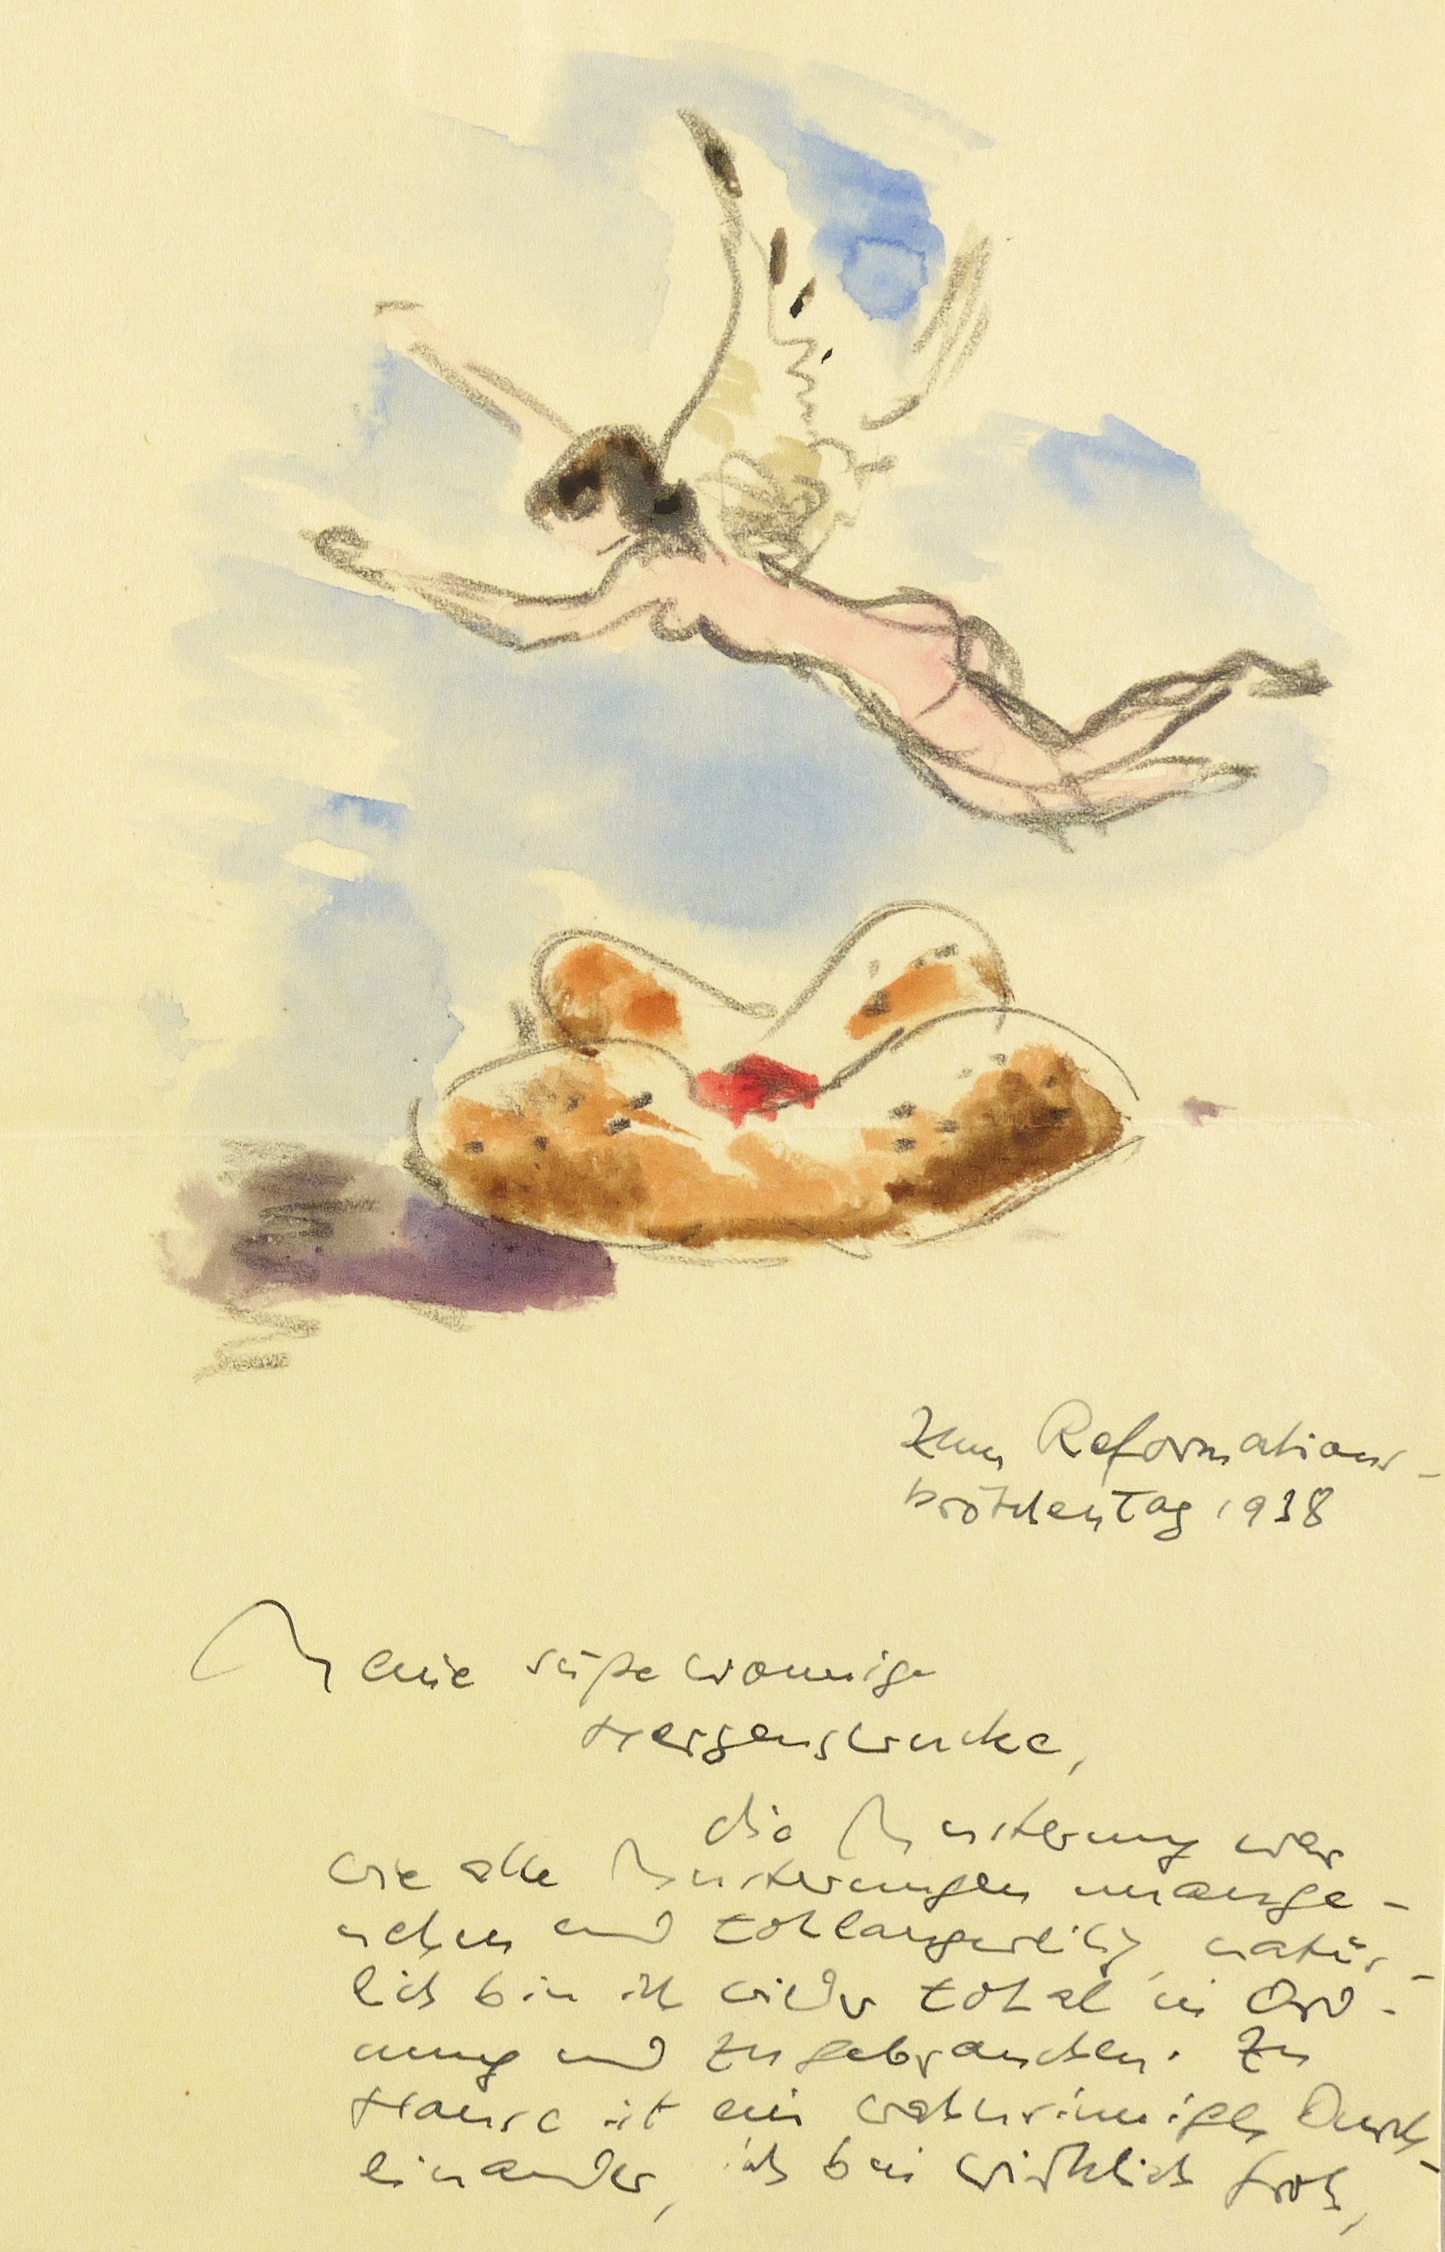 Zum Reformations-
brötchenTag 1938
Meine süße wonnige
Herzensbrucke,
die Musterung war
wie alle Musterungen unange-
nehm und tohlangweilig, natür-
lich bin ich wieder total in Ord-
nung und zu gebrauchen. Zu
Hause ist ein wahnsinniges Durch-
einander, ich bin wirklich froh,